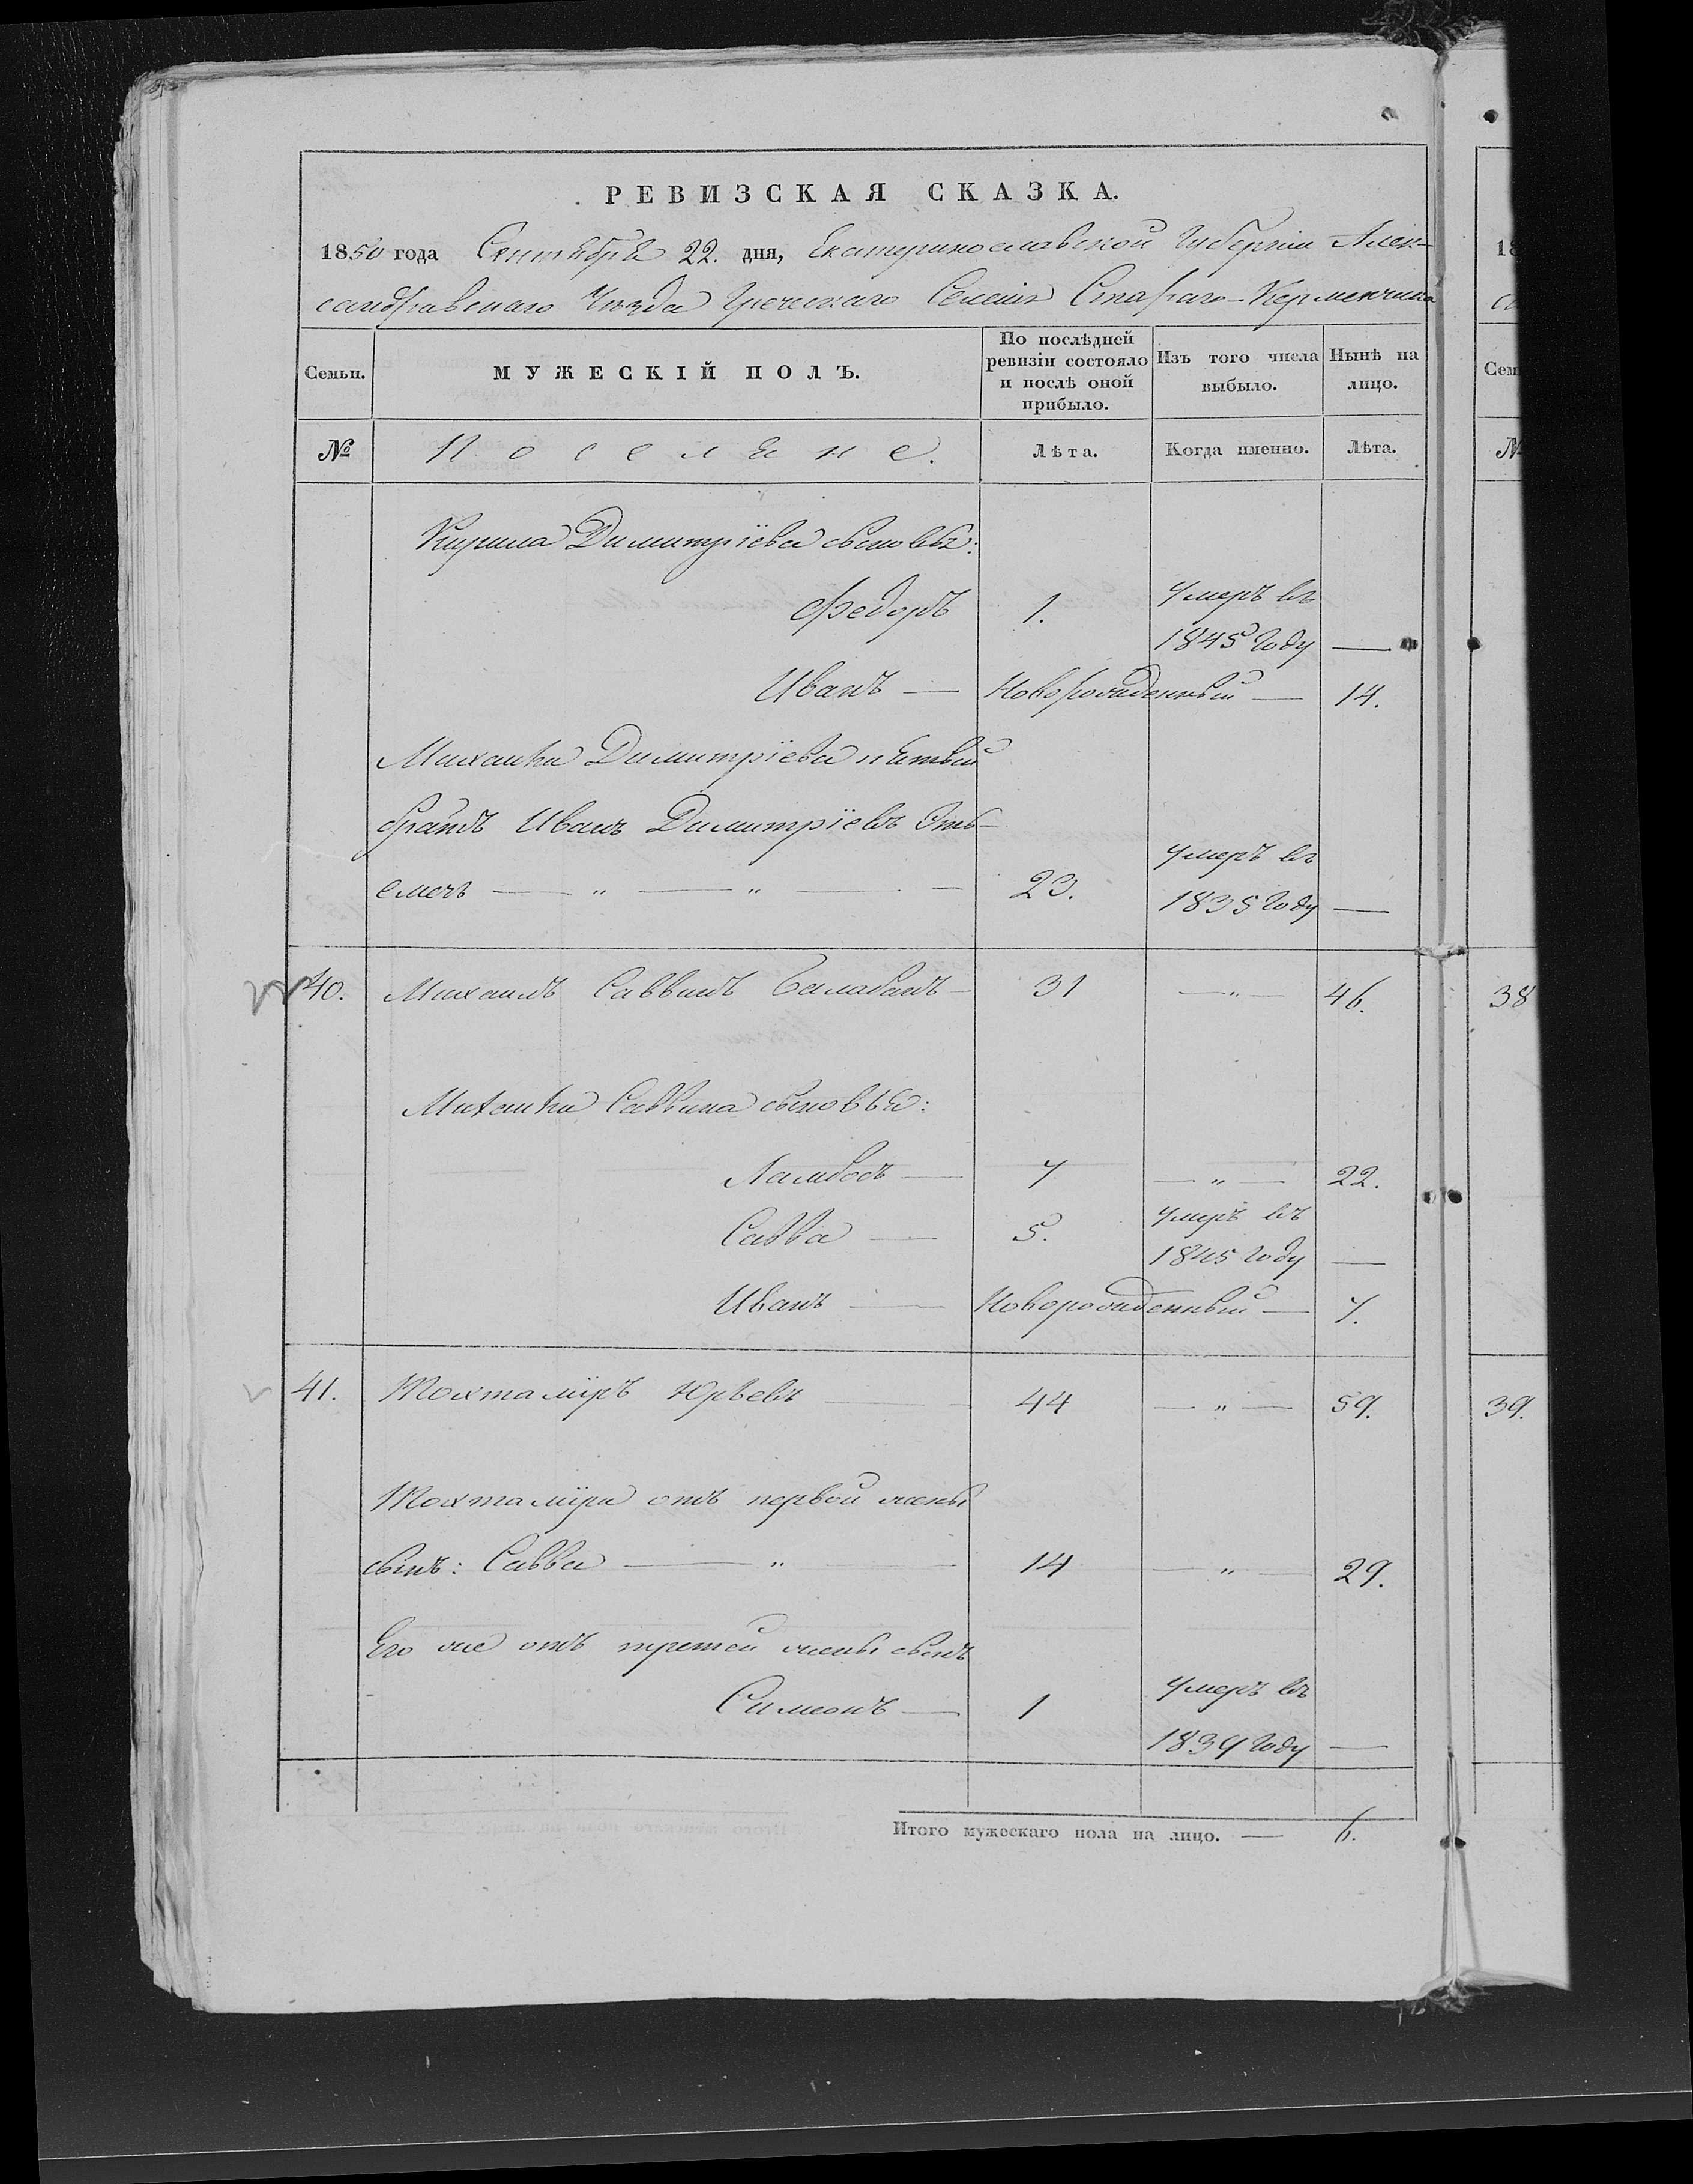 РЕВИЗСКАЯ СКАЗКА.
1850 года Сентября 22. дня, Екатеринославской Губерніи Алек-
сандравскаго Уѣзда Греческаго Селенія Стараго-Керменчика
Семьи.
МУЖЕСКІЙ ПОЛЪ.
По послѣдней ревизіи состояло и послѣ оной прибыло.
Изъ того числа выбыло.
Нынѣ на лицо.
№
Поселяне.
Лѣта.
Когда именно.
Лѣта.
Кирила Димитріева сыновья:
Федоръ 1. Умеръ въ 1845 году —
Иванъ — Новорожденный — 14.
Михайла Димитріева пятый
братъ Иванъ Димитріевъ
23. Умеръ въ 1835 году —
40. Михаилъ Саввинъ Балабанъ — 31 — „ — 46.
Михайла Саввина сыновья:
Ламбосъ — 7 — „ — 22.
Савва — 5. Умеръ въ 1845 году —
Иванъ — Новорожденный — 7.
41. Тохтаміръ Юрьевъ — 44 — „ — 59.
Тохтаміра отъ первой жены
сынъ: Савва — „ — 14 — „ — 29.
Его же отъ третей жены сынъ
Симеонъ — 1 Умеръ въ 1839 году —
Итого мужескаго пола на лицо. — 6.
18
Сем
№
38
39.